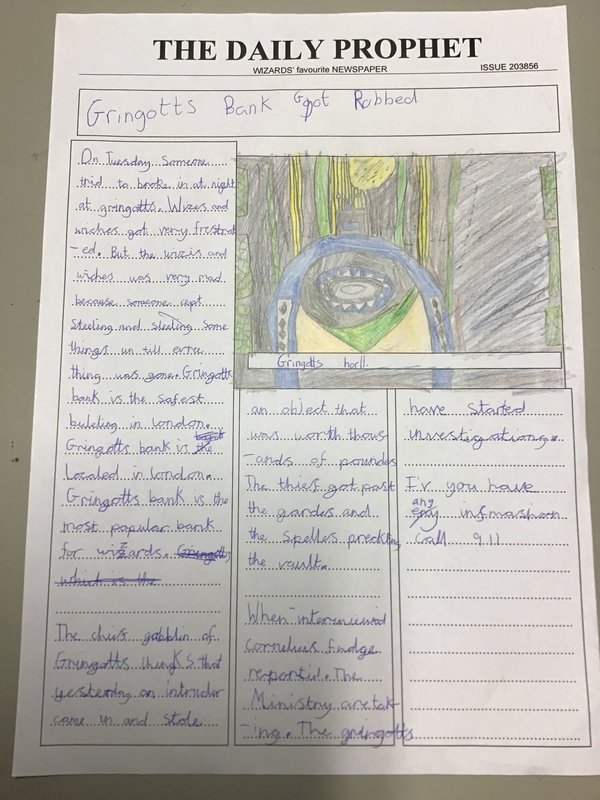 THE DAILY PROPHET
WIZARDS' favourite NEWSPAPER
ISSUE 203856
Gringotts Bank Got Robbed
On Tuesday Someone
trid to broke in at night
at gringotts. Wizeis and
wiches got very frestrat
-ed. But the wizeis and
wiches was very mad
because someone cept
Steeling and steeling some
things un till evre
thing was gone. Gringotts
bank is the safest
bulelling in london.
Gringotts bank is the
Located in london.
Gringotts bank is the
most popular bank
for wizards. Gringotts
which is the
The chief gobblin of
Gringotts thingks that
yesterday an intruder
came in and stole
Gringotts horll.
an object that
was worth thous
-ands of poundes
The thief got past
the gardes and
the Spelles precting
the vault.
When interveiwed
cornelius fudge
reportid. The
Ministry are tak
-ing. The gringotts
have Started
investigationg.
If you have
any infmashon
Call 911